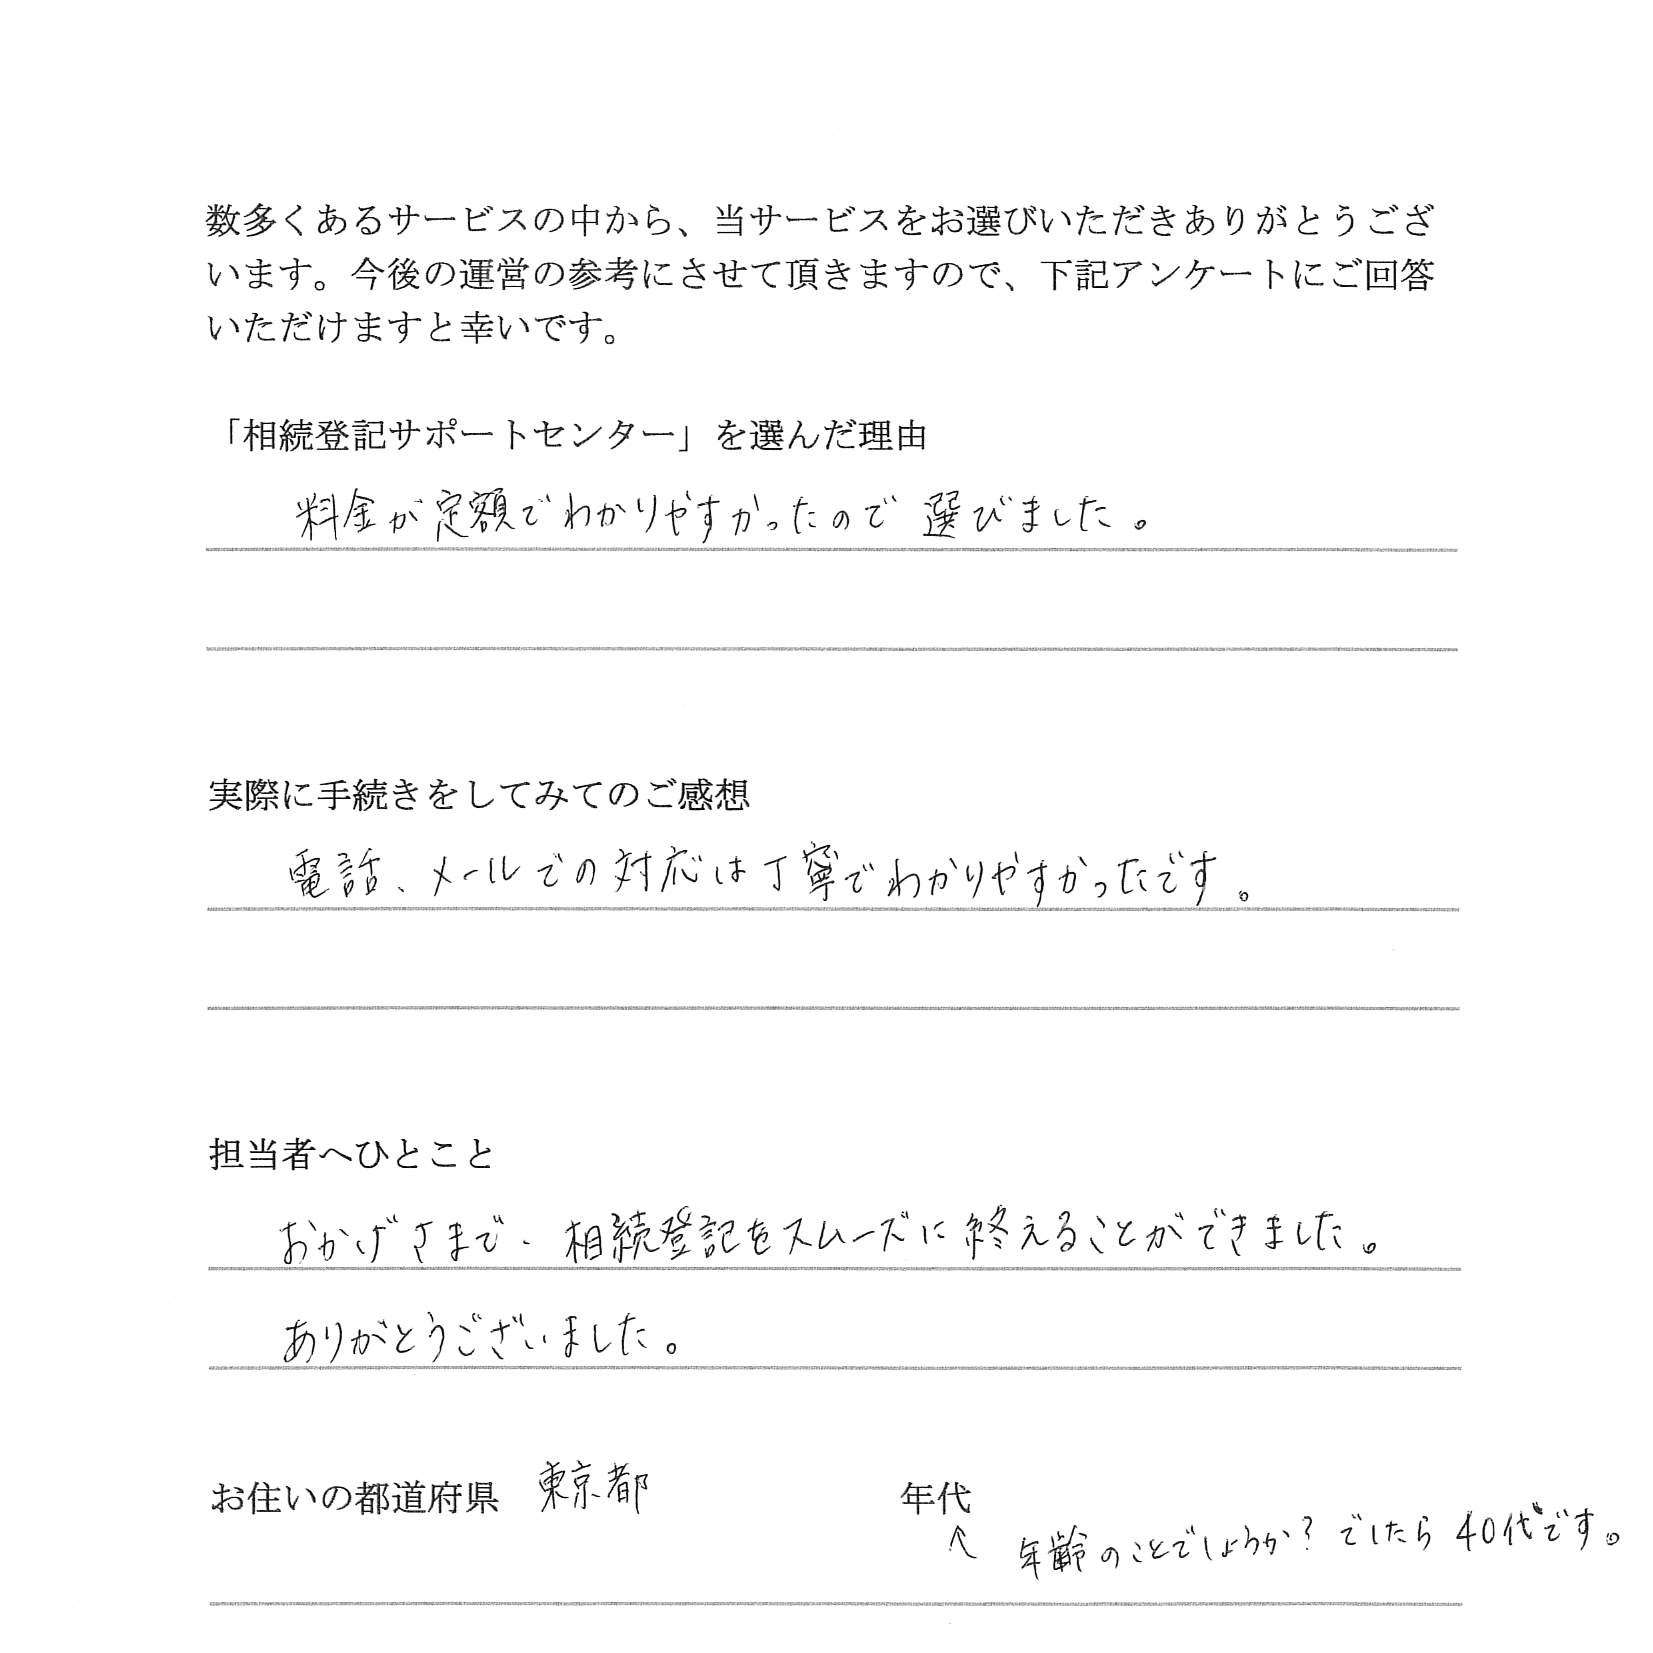 数多くあるサービスの中から、当サービスをお選びいただきありがとうござ
います。今後の運営の参考にさせて頂きますので、下記アンケートにご回答
いただけますと幸いです。
「相続登記サポートセンター」を選んだ理由
料金が定額でわかりやすかったので選びました。
実際に手続きをしてみてのご感想
電話、メールでの対応は丁寧でわかりやすかったです。
担当者へひとこと
おかげさまで、相続登記をスムーズに終えることができました。
ありがとうございました。
お住いの都道府県 東京都 年代
↑ 年齢のことでしょうか?でしたら40代です。